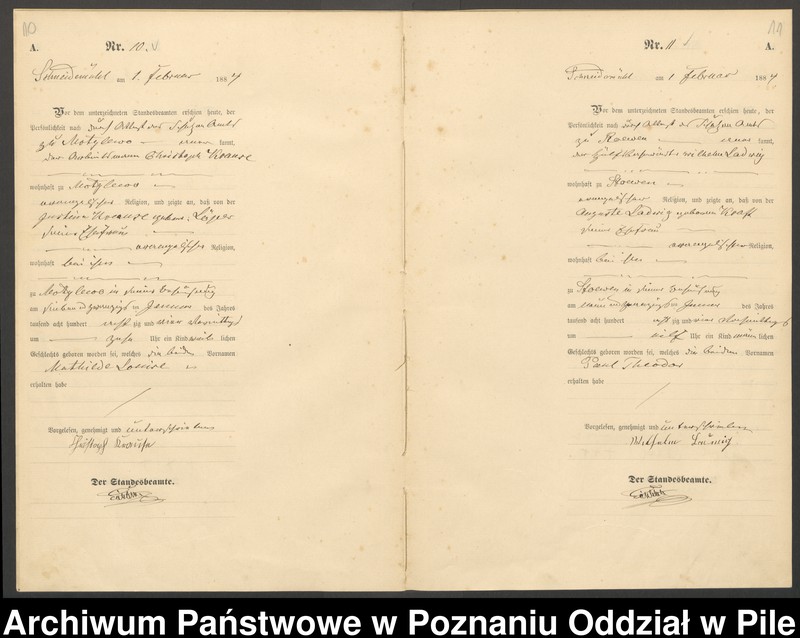 10
A.
Nr. 10.
Schneidemühl am 1. Februar 1884
Vor dem unterzeichneten Standesbeamten erschien heute, der
Persönlichkeit nach durch Attest des Schulzen Amts
zu Motylewo kannt,
der Christoph Krause
wohnhaft zu Motylewo
evangelischer Religion, und zeigte an, daß von der
Justine Krause geborne
seiner Ehefrau
evangelischer Religion,
wohnhaft bei ihm
zu Motylewo in seiner Behausung
am sieben und zwanzigsten Januar des Jahres
tausend acht hundert acht zig und vier Vormittags
um zehn Uhr ein Kind weib lichen
Geschlechts geboren worden sei, welches die beiden Vornamen
Mathilde Louise
erhalten habe
Vorgelesen, genehmigt und unterschrieben
Christoph Krause
Der Standesbeamte.
11
Nr. 11
A.
Schneidemühl am 1 Februar 1884
Vor dem unterzeichneten Standesbeamten erschien heute, der
Persönlichkeit nach durch Attest des Schulzen Amts
zu kannt,
der Wilhelm Ladwig
wohnhaft zu Stoewen
evangelischer Religion, und zeigte an, daß von der
Auguste Ladwig geborenen Kraft
seiner Ehefrau
evangelischer Religion,
wohnhaft bei ihm
zu Stoewen in seiner Behausung
am neun und zwanzigsten Januar des Jahres
tausend acht hundert acht zig und vier Vormittags
um eilf Uhr ein Kind männ lichen
Geschlechts geboren worden sei, welches die beiden Vornamen
Paul Theodor
erhalten habe
Vorgelesen, genehmigt und unterschrieben
Wilhelm Ladwig
Der Standesbeamte.
Archiwum Państwowe w Poznaniu Oddział w Pile